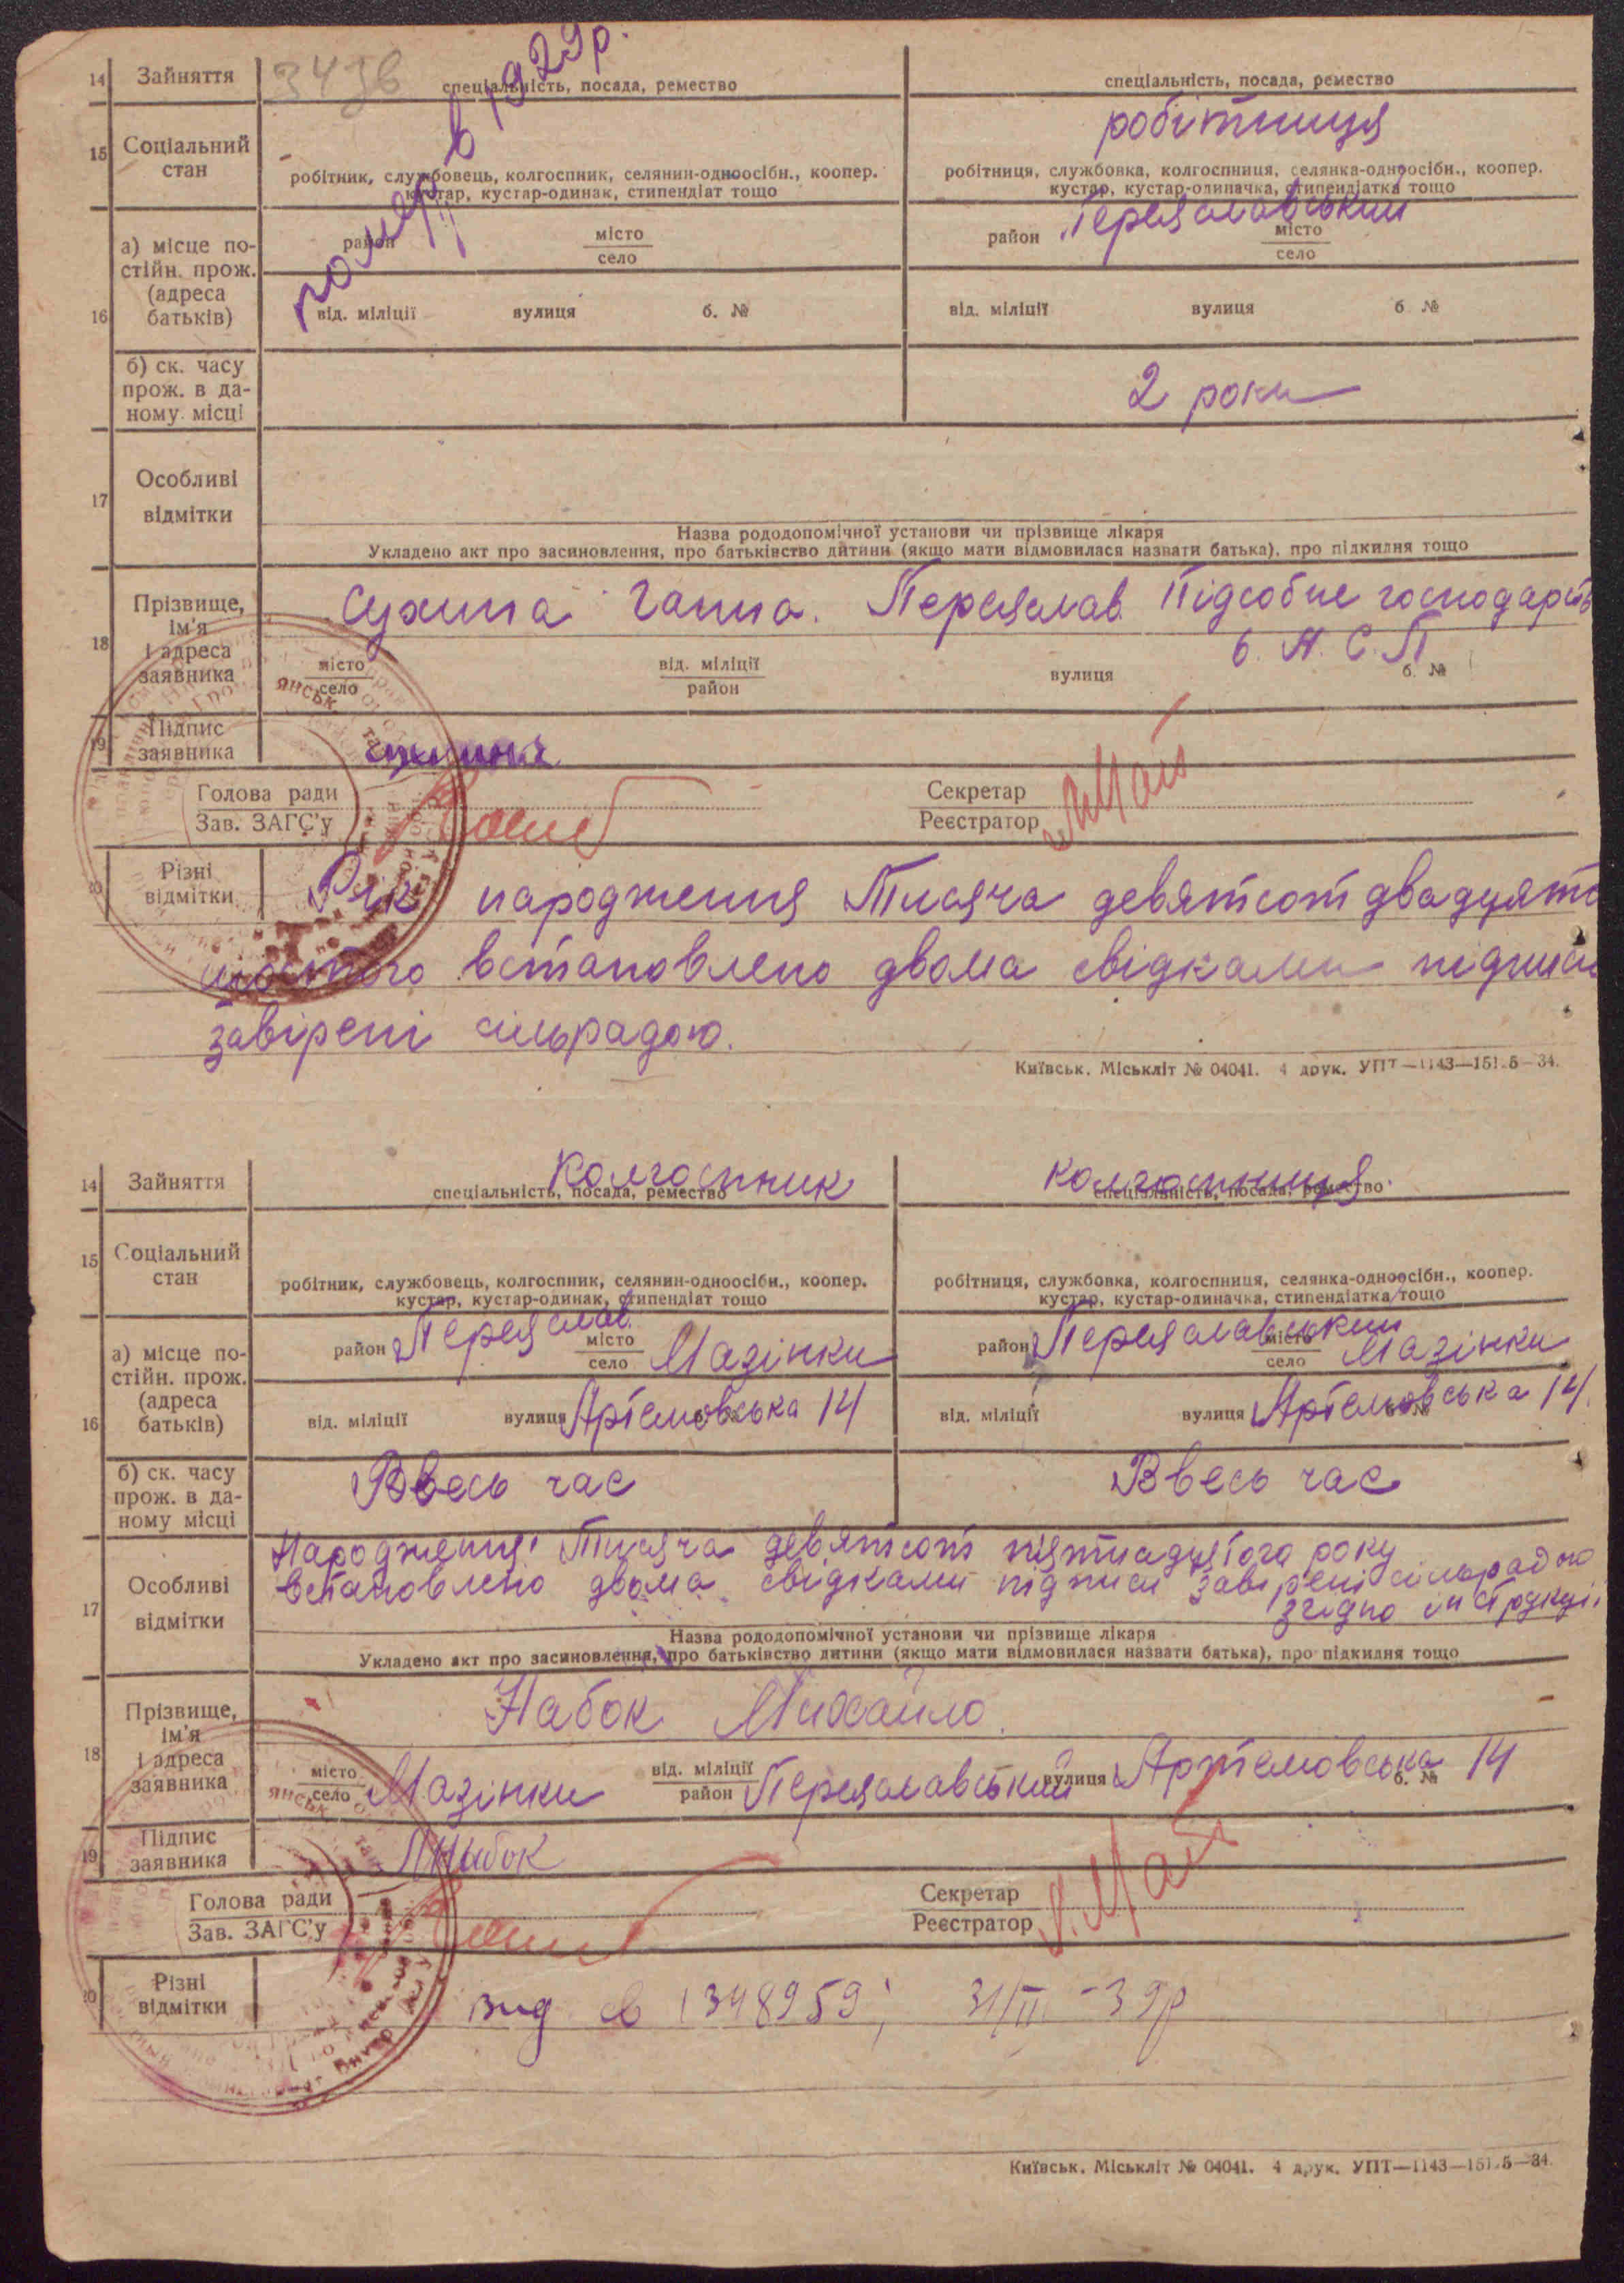 14 Зайняття 3436 спеціальність, посада, ремество спеціальність, посада, ремество
помер в 1929р.
15 Соціальний стан робітниця
робітник, службовець, колгоспник, селянин-одноосібн., коопер. робітниця, службовка, колгоспниця, селянка-одноосібн., коопер.
кустар, кустар-одинак, стипендіат тощо кустар, кустар-одиначка, стипендіатка тощо
16 а) місце по-
стійн. прож.
(адреса
батьків)
район місто село район Переяславський місто село
від. міліції вулиця б. № від. міліції вулиця б. №
б) ск. часу
прож. в да-
ному місці
2 роки
17 Особливі
відмітки
Назва рододопомічної установи чи прізвище лікаря
Укладено акт про засиновлення, про батьківство дитини (якщо мати відмовилася назвати батька), про підкидня тощо
18 Прізвище,
ім'я
і адреса
заявника
Сухина Ганна. Переяслав Підсобне господарств
б. Н. С. П
місто село від. міліції район вулиця б. №
19 Підпис
заявника
Голова ради Секретар
Зав. ЗАГС'у Реєстратор
20 Різні
відмітки
Рік народження Тисяча девятсот двадцять
шостого встановлено двома свідками підписи
завірені сільрадою.
Київськ. Міськліт № 04041. 4 друк. УПТ—1143—151.5—34.
14 Зайняття Колгоспник колгоспниця
спеціальність, посада, ремество спеціальність, посада, ремество
15 Соціальний
стан
робітник, службовець, колгоспник, селянин-одноосібн., коопер. робітниця, службовка, колгоспниця, селянка-одноосібн., коопер.
кустар, кустар-одинак, стипендіат тощо кустар, кустар-одиначка, стипендіатка тощо
16 а) місце по-
стійн. прож.
(адреса
батьків)
район Переяслав місто село Мазінки район Переяславський місто село Мазінки
від. міліції вулиця Артемовська 14 від. міліції вулиця Артемовська 14.
б) ск. часу
прож. в да-
ному місці
Ввесь час Ввесь час
17 Особливі
відмітки
Народження Тисяча девятсот пятнадцятого року
встановлено двома свідками підписи завірені сільрадою
згідно інструкції.
Назва рододопомічної установи чи прізвище лікаря
Укладено акт про засиновлення, про батьківство дитини (якщо мати відмовилася назвати батька), про підкидня тощо
18 Прізвище,
ім'я
і адреса
заявника
Набок Михайло.
місто село Мазінки від. міліції район Переяславський вулиця Артемовська б. № 14
19 Підпис
заявника
Набок
Голова ради Секретар
Зав. ЗАГС'у Реєстратор
20 Різні
відмітки
вид св 1348959; 31/II - 39р
Київськ. Міськліт № 04041. 4 друк. УПТ—1143—151.5—34.